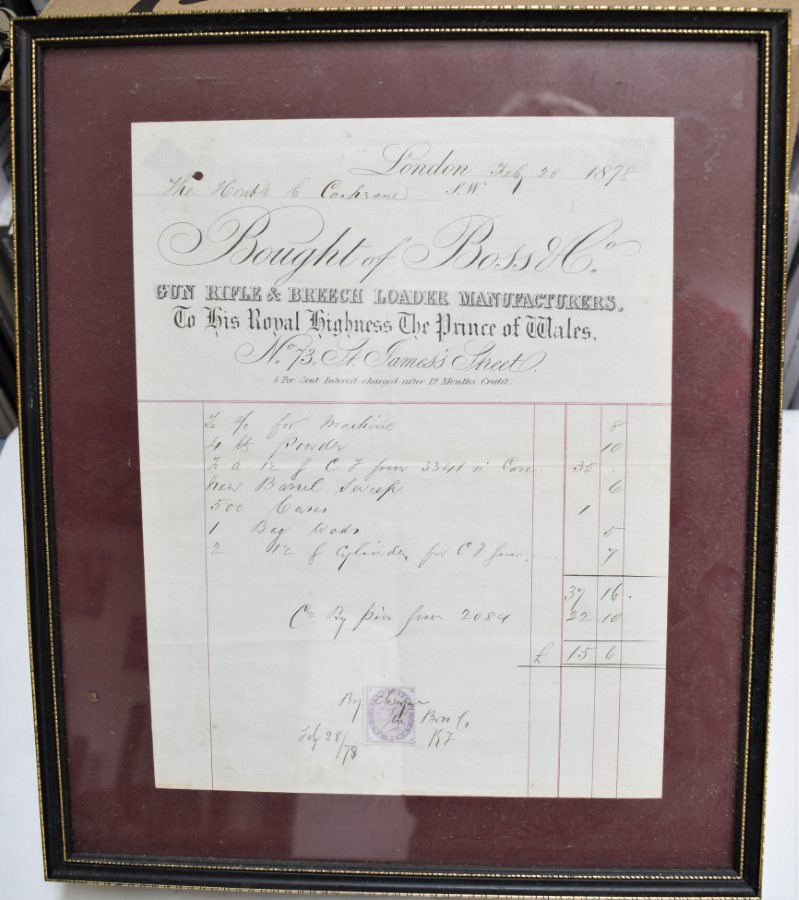 London Feb 26 1878
The Honble C Cochrane S.W
Bought of Boss & Co.
GUN RIFLE & BREECH LOADER MANUFACTURERS,
To His Royal Highness The Prince of Wales,
No. 73, St. James's Street.
5 Per Cent Interest charged after 12 Months Credit.
for Machine 8
4 lb Powder 10
12 g C F gun 3341 in Case. 35 .
New Barrel Sweep 6
500 Cases 1
1 Bag Wads 5
2 12 g Cylinder for C F gun. 7
37 16 .
Cr By pin gun 2084 22 10
£ 15 6
By Cheque
Boss Co
Feby 28/78